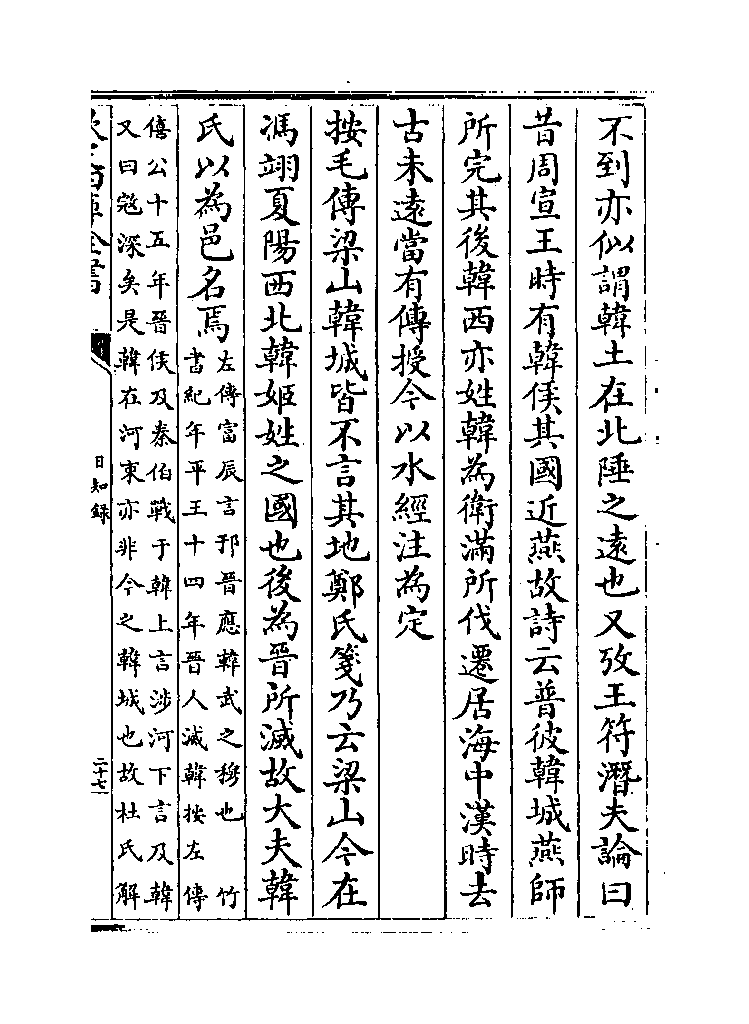 不到亦似謂韓土在北陲之遠也又攷王符潛夫論曰
昔周宣王時有韓侯其國近燕故詩云普彼韓城燕師
所完其後韓西亦姓韓為衛滿所伐遷居海中漢時去
古未遠當有傳授今以水經注為定
按毛傳梁山韓城皆不言其地鄭氏箋乃云梁山今在
馮翊夏陽西北韓姬姓之國也後為晉所滅故大夫韓
氏以為邑名焉
左傳富辰言邘晉應韓武之穆也 竹
書紀年平王十四年晉人滅韓按左傳
僖公十五年晉侯及秦伯戰于韓上言涉河下言及韓
又曰寇深矣是韓在河東亦非今之韓城也故杜氏解
欽定四庫全書
日知錄
二十七